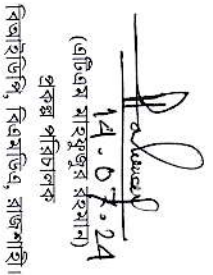 14.07.24
(এটিএম মাহফুজুর রহমান)
প্রকল্প পরিচালক
বিআইডিপি, বিএমডিএ, রাজশাহী।